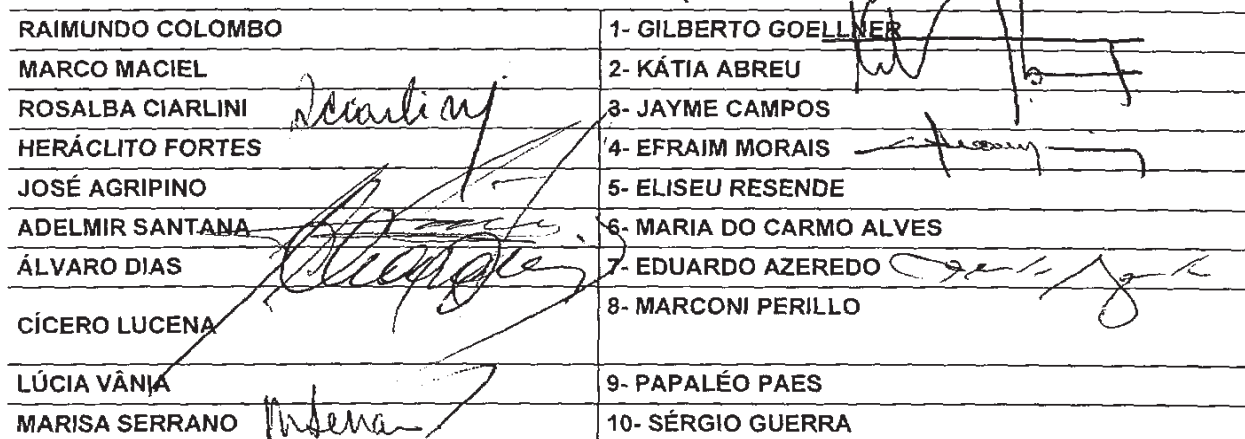 RAIMUNDO COLOMBO 1- GILBERTO GOELLNER
MARCO MACIEL 2- KÁTIA ABREU
ROSALBA CIARLINI Rciarlini 3- JAYME CAMPOS
HERÁCLITO FORTES 4- EFRAIM MORAIS
JOSÉ AGRIPINO 5- ELISEU RESENDE
ADELMIR SANTANA 6- MARIA DO CARMO ALVES
ÁLVARO DIAS 7- EDUARDO AZEREDO
CÍCERO LUCENA 8- MARCONI PERILLO
LÚCIA VÂNIA 9- PAPALÉO PAES
MARISA SERRANO 10- SÉRGIO GUERRA